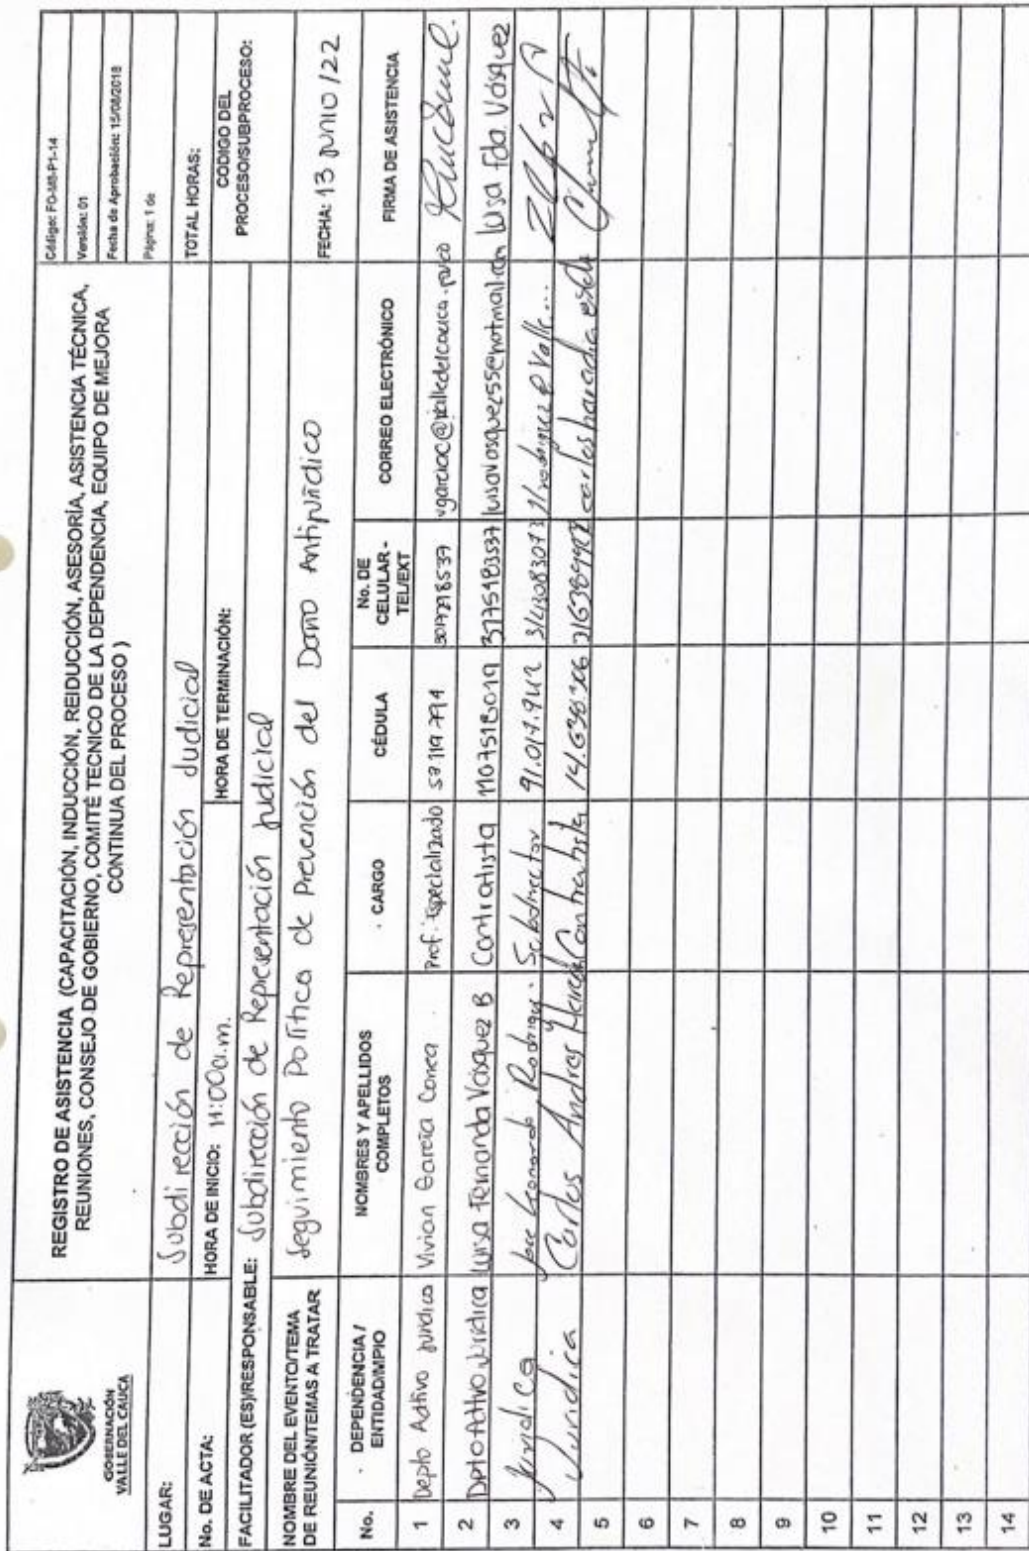 GOBERNACIÓN
VALLE DEL CAUCA
REGISTRO DE ASISTENCIA (CAPACITACIÓN, INDUCCIÓN, REIDUCCIÓN, ASESORÍA, ASISTENCIA TÉCNICA,
REUNIONES, CONSEJO DE GOBIERNO, COMITÉ TECNICO DE LA DEPENDENCIA, EQUIPO DE MEJORA
CONTINUA DEL PROCESO )
Código: FO-M9-P1-14
Versión: 01
Fecha de Aprobación: 15/08/2018
Página: 1 de
LUGAR: Subdirección de Representación Judicial
TOTAL HORAS:
No. DE ACTA:
HORA DE INICIO: 11:00a.m.
HORA DE TERMINACIÓN:
CODIGO DEL
PROCESO/SUBPROCESO:
FACILITADOR (ES)/RESPONSABLE: Subdirección de Representación Judicial
NOMBRE DEL EVENTO/TEMA
DE REUNIÓN/TEMAS A TRATAR
Seguimiento Política de Prevención del Daño Antijurídico
FECHA: 13 junio /22
No.
DEPENDENCIA /
ENTIDAD/MPIO
NOMBRES Y APELLIDOS
COMPLETOS
CARGO
CÉDULA
No. DE
CELULAR -
TEL/EXT
CORREO ELECTRÓNICO
FIRMA DE ASISTENCIA
1 Depto Adtivo Jurídico Vivian Garcia Correa Prof. Especializado
2 Dpto Adtivo Jurídica Luisa Fernanda Vásquez B Contratista 1107518019 3175183537 luisavasquez55@hotmail.com Luisa Fda. Vásquez
3 Jurídica Jose Leonardo Rodrigu. Subdirector 91.014.942
4 Juridica Carlos Andres Contratista
5
6
7
8
9
10
11
12
13
14